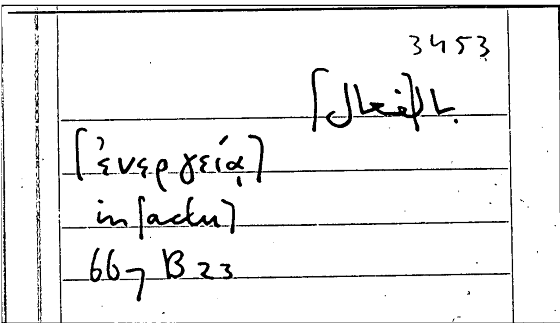 3453
[ἐνεργείᾳ]
in [actu]
667 B 23